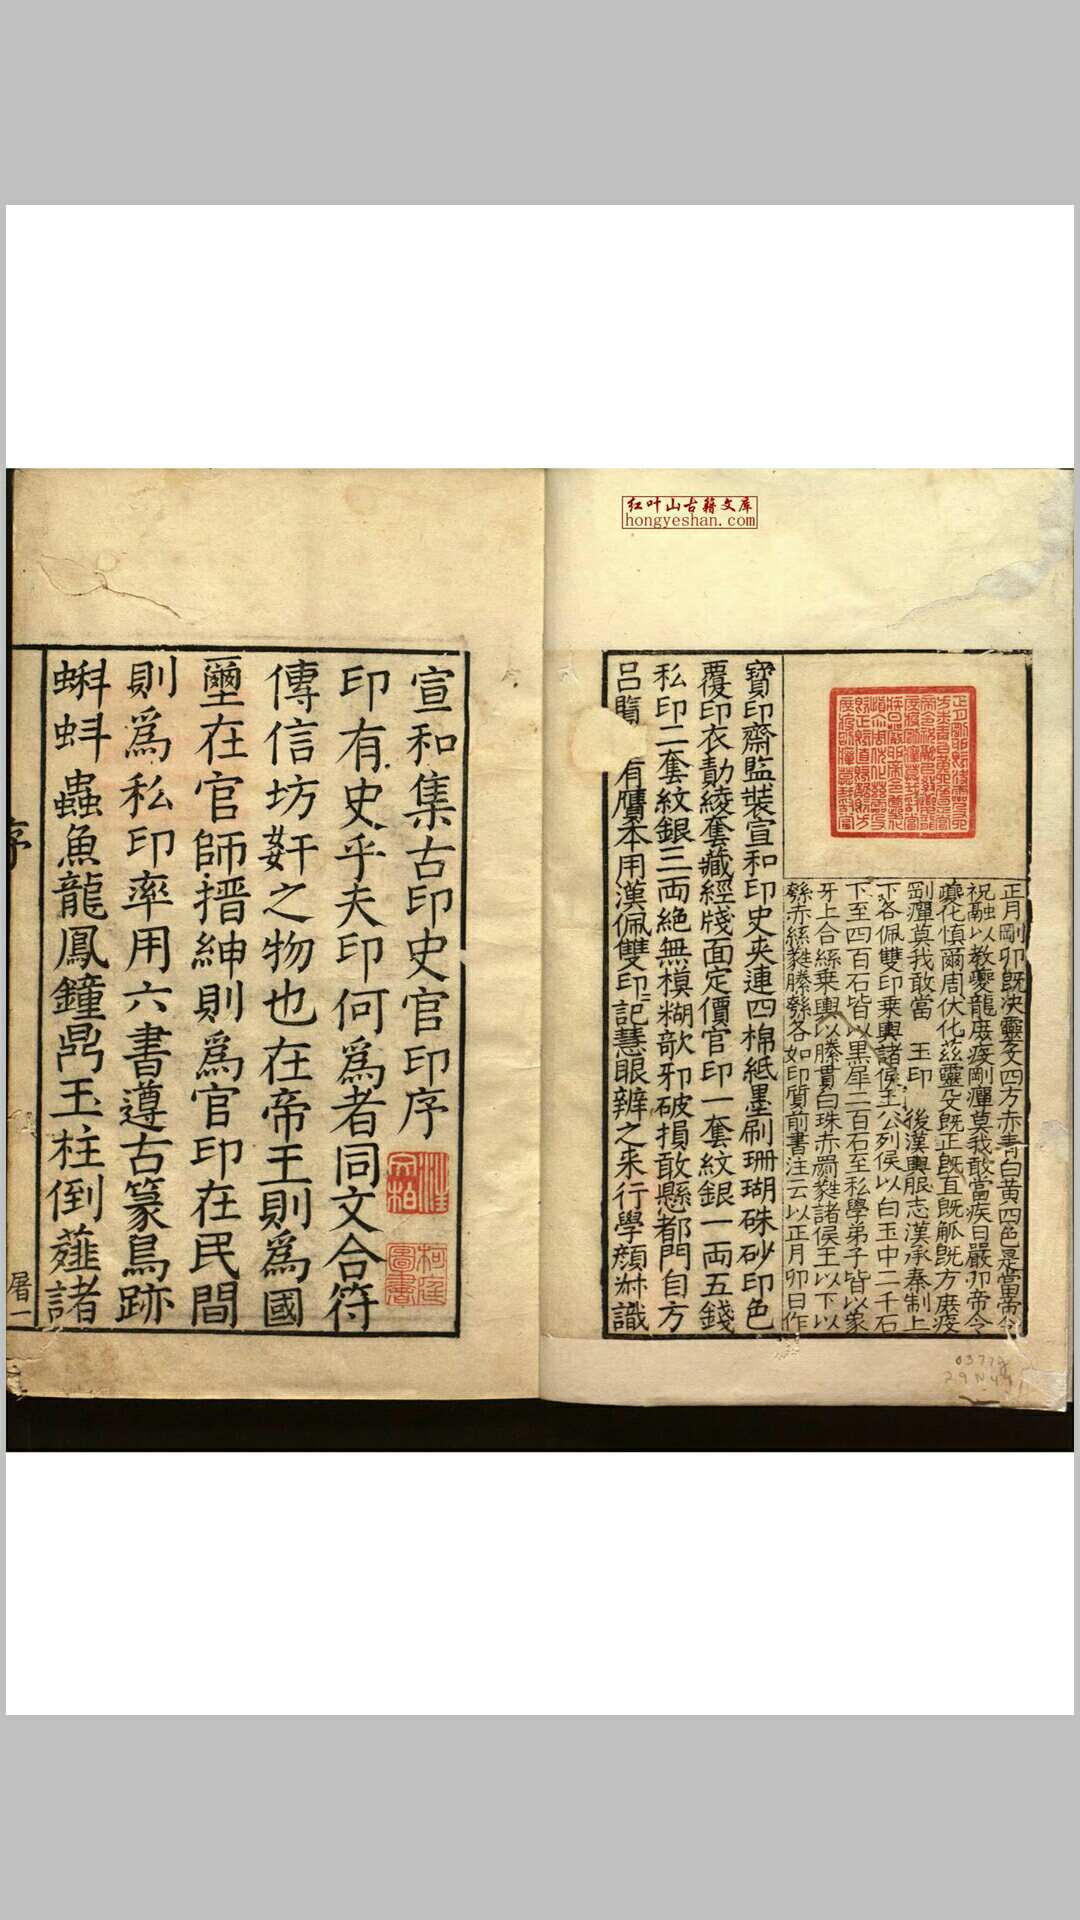 红叶山古籍文库
hongyeshan.com
正月剛卯既決靈殳四方赤青白黃四色是當帝令
祝融以教夔龍庶疫剛癉莫我敢當疾日嚴卯帝令
夔化慎爾周伏化茲靈殳既正既直既觚既方庶疫
剛癉莫我敢當 玉印 後漢輿服志漢承秦制上
下各佩雙印乘輿諸侯王公列侯以白玉中二千石
下至四百石皆以黑犀二百石至私學弟子皆以象
牙上合絲乘輿以縢貫白珠赤罽蕤諸侯王以下以
綔赤絲蕤縢綔各如印質前書注云以正月卯日作
寶印齋監裝宣和印史夾連四棉紙墨刷珊瑚硃砂印色
覆印衣勣綾套藏經牋面定價官印一套紋銀一兩五錢
私印二套紋銀三兩絕無模糊欹邪破損敢懸都門自方
呂覽 有贋本用漢佩雙印印記慧眼辨之來行學顏叔識
宣和集古印史官印序
印有史乎夫印何爲者同文合符
傳信坊姧之物也在帝王則爲國
璽在官師搢紳則爲官印在民間
則爲私印率用六書遵古篆鳥跡
蝌蚪蟲魚龍鳳鐘鼎玉柱倒薤諸
序
屠一
柯庭
圖書